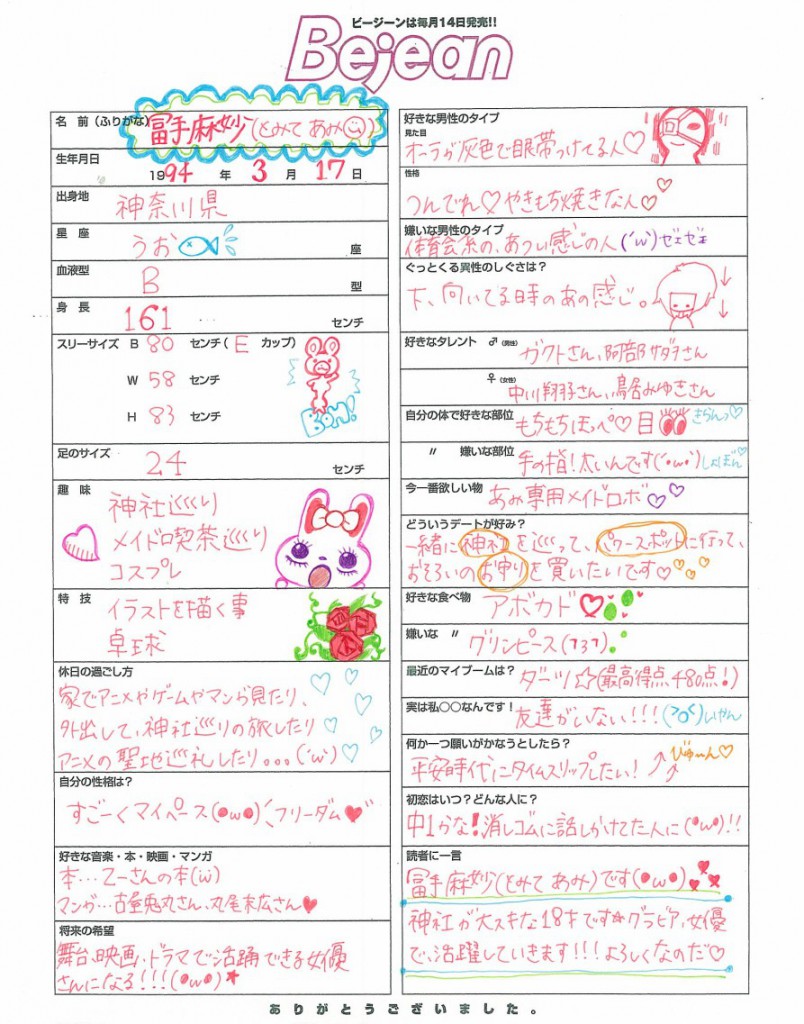 ビージーンは毎月14日発売!!
Bejean
名　前 (ふりがな) 冨手麻妙(とみて あみ)
生年月日
1994 年 3 月 17 日
出身地 神奈川県
星　座 うお 座
血液型 B 型
身　長 161 センチ
スリーサイズ B 80 センチ( E カップ)
W 58 センチ
H 83 センチ
BOM!
足のサイズ 24 センチ
趣　味 神社巡り
メイド喫茶巡り
コスプレ
特　技 イラストを描く事
卓球
休日の過ごし方
家でアニメやゲームやマンガ見たり、
外出して、神社巡りの旅したり
アニメの聖地巡礼したり。。。(´ω`)
自分の性格は?
すごーくマイペース(●ω●) フリーダム♥
好きな音楽・本・映画・マンガ
本…乙一さんの本(ω)
マンガ…古屋兎丸さん、丸尾末広さん♥
将来の希望
舞台、映画、ドラマで活踊できる女優
さんになる!!!(●ω●)★
好きな男性のタイプ
見た目
オーラが灰色で眼帯つけてる人♡
性格
つんでれ♡やきもち焼きな人♡♡
嫌いな男性のタイプ
体育会系の、あつい感じの人 (´ω`)ゼェゼェ
ぐっとくる異性のしぐさは?
下、向いてる時のあの感じ。
好きなタレント ♂(男性) ガクトさん、阿部サダヲさん
♀(女性) 中川翔子さん、鳥居みゆきさん
自分の体で好きな部位 もちもちほっぺ♡ 目 きらんっ♡
〃　嫌いな部位 手の指!太いんです(´●ω●`)しょぼん
今一番欲しい物 あみ専用メイドロボ♡♡
どういうデートが好み?
一緒に神社を巡って、パワースポットに行って、
おそろいのお守りを買いたいです♡♡♡♡
好きな食べ物 アボカド♡
嫌いな 〃 グリンピース
最近のマイブームは? ダーツ☆(最高得点480点!)
実は私○○なんです! 友達がいない!!! いやん
何か一つ願いがかなうとしたら? びゅーん♡
平安時代にタイムスリップしたい!
初恋はいつ?どんな人に?
中1かな!消しゴムに話しかけてた人に(●ω●)!!
読者に一言
冨手麻妙(とみて あみ)です(●ω●)
神社が大スキな18才です☆グラビア、女優
で、活躍していきます!!!よろしくなのだ♡
ありがとうございました。